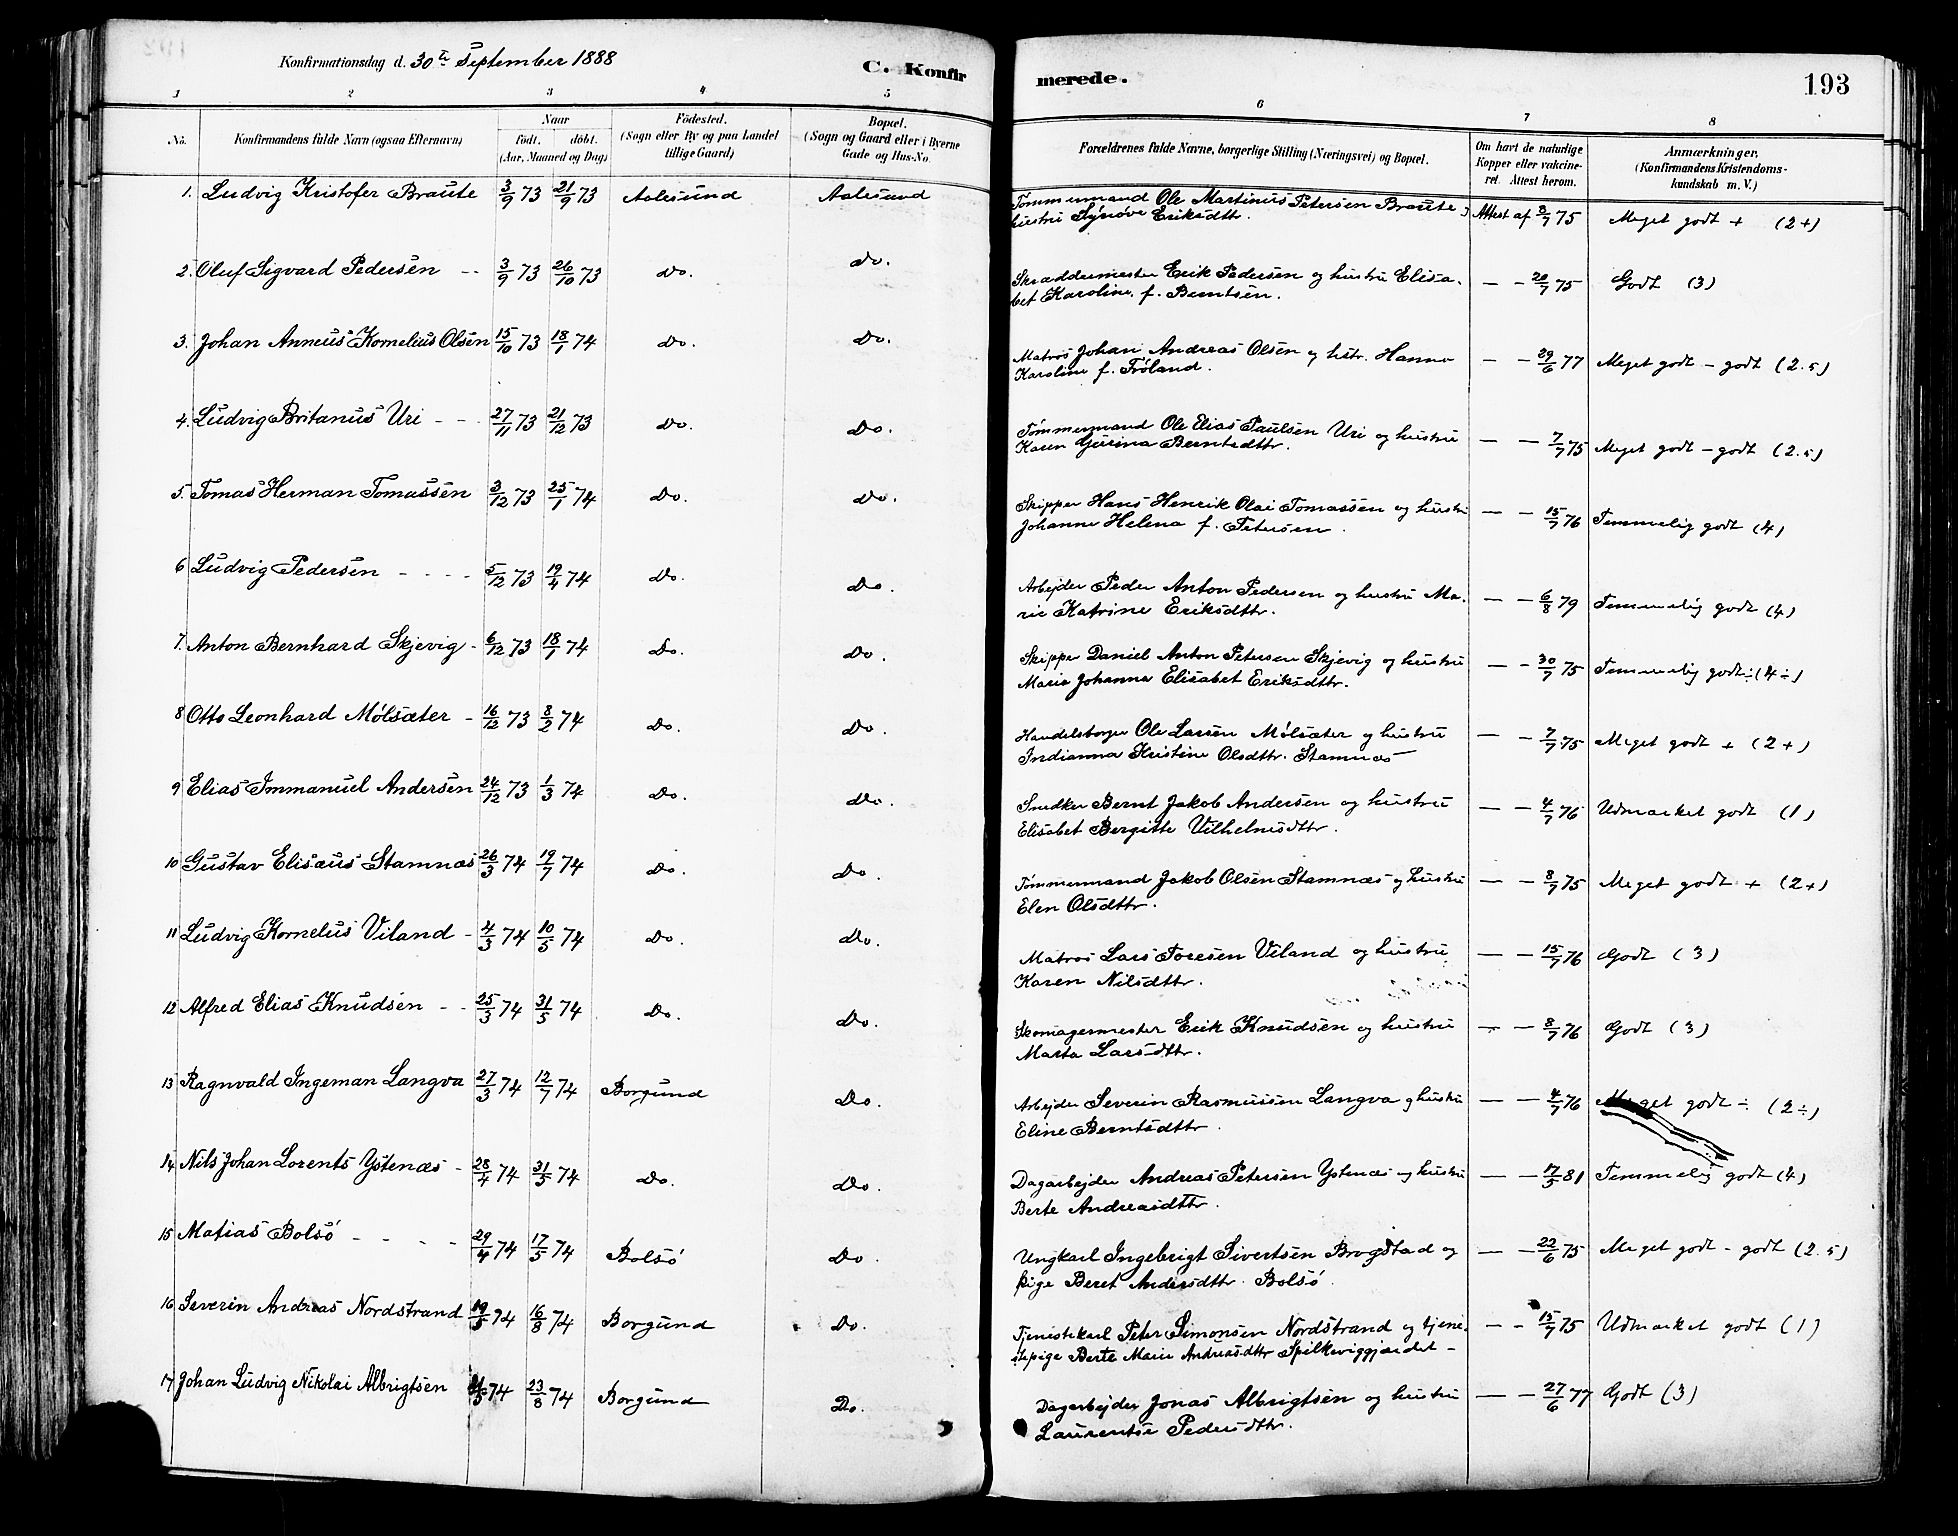 Konfirmationsdag d. 30te September 1888
C. Konfirmerede.
193
1 2 3 4 5 6 7 8
No. Konfirmandens fulde Navn (ogsaa Efternavn) Naar født. døbt. (Aar, Maaned og Dag) Fødested. (Sogn eller By og paa Landet tillige Gaard) Bopæl. (Sogn og Gaard eller i Byerne Gade og Hus-No. Forældrenes fulde Navne, borgerlige Stilling (Næringsvei) og Bopæl. Om havt de naturlige Kopper eller vakcineret. Attest herom. Anmærkninger. (Konfirmandens Kristendomskundskab m. V.)
1. Ludvig Kristofer Braute 3/9 73 21/9 73 Aalesund Aalesund Tømmermand Ole Martinus Petersen Braute &
hustru Synøve Eriksdtr. Attest af 8/7 75 Meget godt + (2+)
2. Oluf Sigvard Pedersen -- 3/9 73 26/10 73 Do. Do. Skræddermester Erik Pedersen og hustru Elisa-
bet Karoline f. Berntsen. — - 20/7 75 Godt (3)
3. Johan Anneus Kornelius Olsen 15/10 73 18/1 74 Do. Do. Matros Johan Andreas Olsen og hstr. Hanna
Karoline f. Frøland. — - 29/6 77 Meget godt - godt (2.5)
4. Ludvig Britanus Uri -- 27/11 73 21/12 73 Do. Do. Tømmermand Ole Elias Paulsen Uri og hustru
Karen Gurina Berntsdttr. — - 7/7 75 Meget godt - godt (2.5)
5. Tomas Herman Tomassen 3/12 73 25/1 74 Do. Do. Skipper Hans Henrik Olai Tomassen og hustru
Johanne Helena f. Petersen. — - 15/7 76 Temmelig godt (4)
6 Ludvig Pedersen - - - - 5/12 73 19/4 74 Do. Do. Arbejder Peder Anton Pedersen og hustru Ma-
rie Katrine Eriksdttr. — - 6/8 79 Temmelig godt (4)
7. Anton Bernhard Skjevig - 6/12 73 18/1 74 Do. Do. Skipper Daniel Anton Petersen Skjevig og hustru
Maria Johanna Elisabet Eriksdttr. — - 30/7 75 Temmelig godt ÷ (4÷)
8 Otto Leonhard Mølsæter - 16/12 73 8/2 74 Do. Do. Handelsborger Ole Larsen Mølsæter og hustru
Indianna Kristine Olsdttr. Stamnæs — — - 7/7 75 Meget godt + (2+)
9 Elias Immanuel Andersen 24/12 73 1/3 74 Do. Do. Snedker Bernt Jakob Andersen og hustru
Elisabet Bergitte Vilhelmsdttr. — - 4/7 76 Udmærket godt (1)
10 Gustav Elisæus Stamnæs 26/3 74 19/7 74 Do. Do. Tømmermand Jakob Olsen Stamnæs og hustru
Elen Olsdttr. — - 8/7 75 Meget godt + (2+)
11 Ludvig Kornelius Viland - 4/3 74 10/5 74 Do. Do. Matros Lars Toresen Viland og hustru
Karen Nilsdttr. — - 15/7 76 Godt (3)
12 Alfred Elias Knudsen -- 25/3 74 31/5 74 Do. Do. Skomagermester Erik Knudsen og hustru
Marta Larsdttr. — - 8/7 76 Godt (3)
13 Ragnvald Ingeman Langva 27/3 74 12/7 74 Borgund Do. Arbejder Severin Rasmussen Langva og hustru
Eline Berntsdttr. — - 4/7 76 Meget godt ÷ (2÷)
14 Nils Johan Lorents Ystenæs - 28/4 74 31/5 74 Do. Do. Dagarbejder Andreas Petersen Ystenæs og hustru
Berte Andreasdttr. — - 17/5 81 Temmelig godt (4)
15 Matias Bolsø - - - - 29/4 74 17/5 74 Bolsø Do. Ungkarl Ingebrigt Sivertsen Brogstad og
pige Beret Andersdttr. Bolsø. — - 22/6 75 Meget godt - godt (2.5)
16 Severin Andreas Nordstrand 19/5 74 16/8 74 Borgund Do. Tjenestekarl Peter Simonsen Nordstrand og tjene-
stepige Berte Marie Andreasdttr Spilkeviggjærdet - — - 15/7 75 Udmærket godt (1)
17 Johan Ludvig Nikolai Albrigtsen 74 23/8 74 Borgund Do. Dagarbejder Jonas Albrigtsen og hustru
Laurentse Pedersdttr. — - 27/6 77 Godt (3)